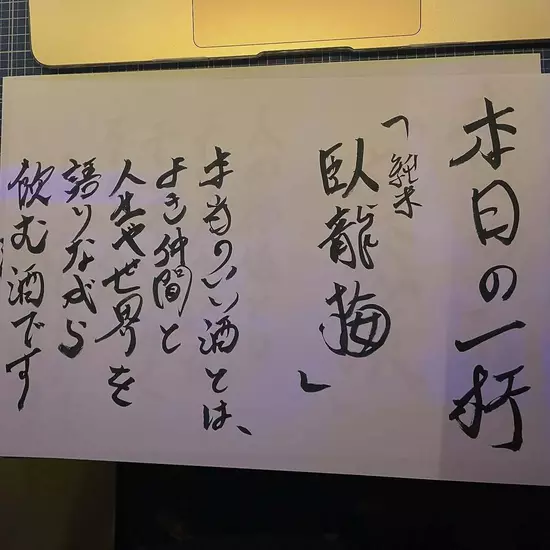 本日の一杯
「純米
臥龍梅」
本当のいい酒とは、
よき仲間と
人生や世界を
語りながら
飲む酒です